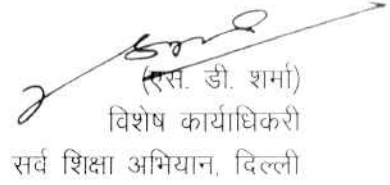 (एस. डी. शर्मा)
विशेष कार्याधिकरी
सर्व शिक्षा अभियान, दिल्ली